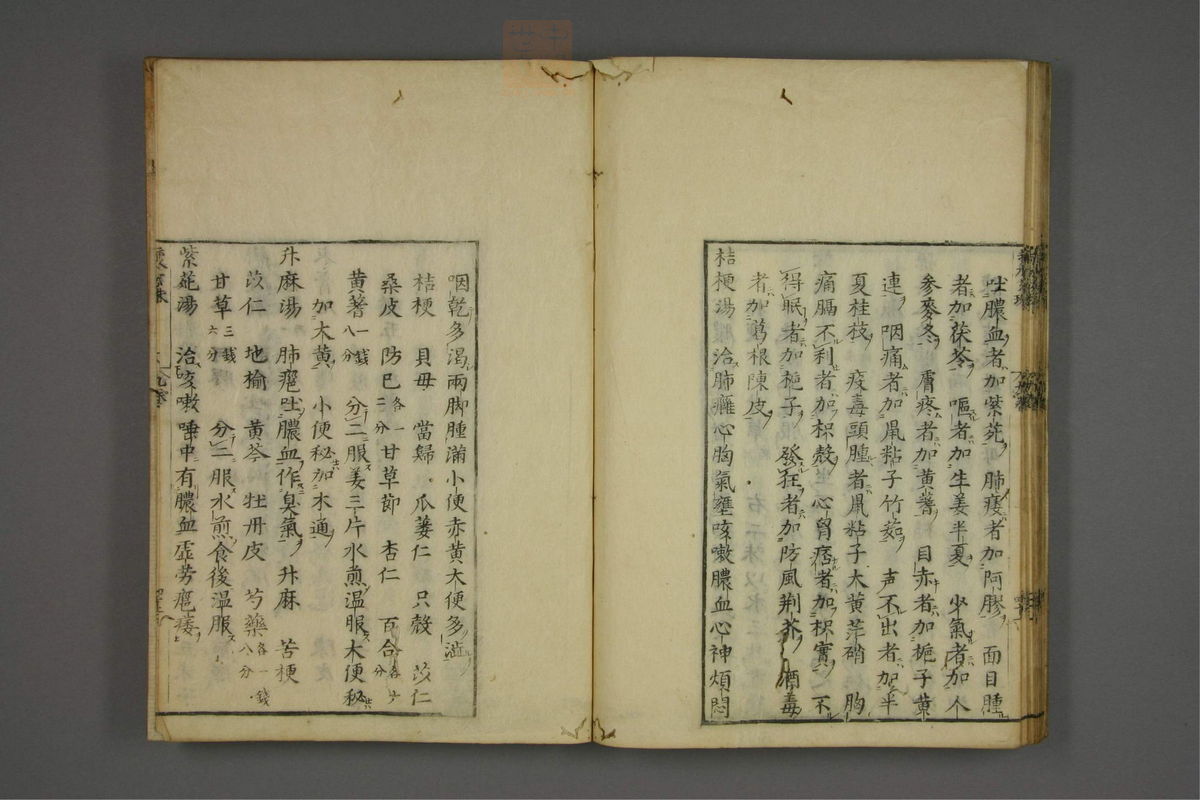 吐膿血者加紫菀 肺痿者加阿膠 面目腫
者加茯苓 嘔者加生姜半夏 少氣者加人
參麥冬 膚疼者加黄蓍 目赤者加梔子黄
連 咽痛者加鼠粘子竹茹 声不出者加半
夏桂枝 疫毒頭腫者鼠粘子大黄芒硝 胸
痛膈不利者加枳殻 心胷痞者加枳實 不
得眠者加梔子 發狂者加防風荆芥 酒毒
者加葛根陳皮
桔梗湯 治肺癰心胸氣壅咳嗽膿血心神煩悶
咽乾多渇兩脚腫滿小便赤黄大便多澁
桔梗 貝母 當歸 瓜蔞仁 只殻 苡仁
桑皮 防巳各一二分 甘草節 杏仁 百合各六分
黄蓍一錢八分 分二服姜三片水煎温服大便秘
加大黄 小便秘加木通
升麻湯 肺癰吐膿血作臭氣 升麻 苦梗
苡仁 地榆 黄芩 牡丹皮 芍藥各一錢八分
甘草三錢六分 分二服水煎食後温服
紫菀湯 治咳嗽唾中有膿血虚劳癰痿